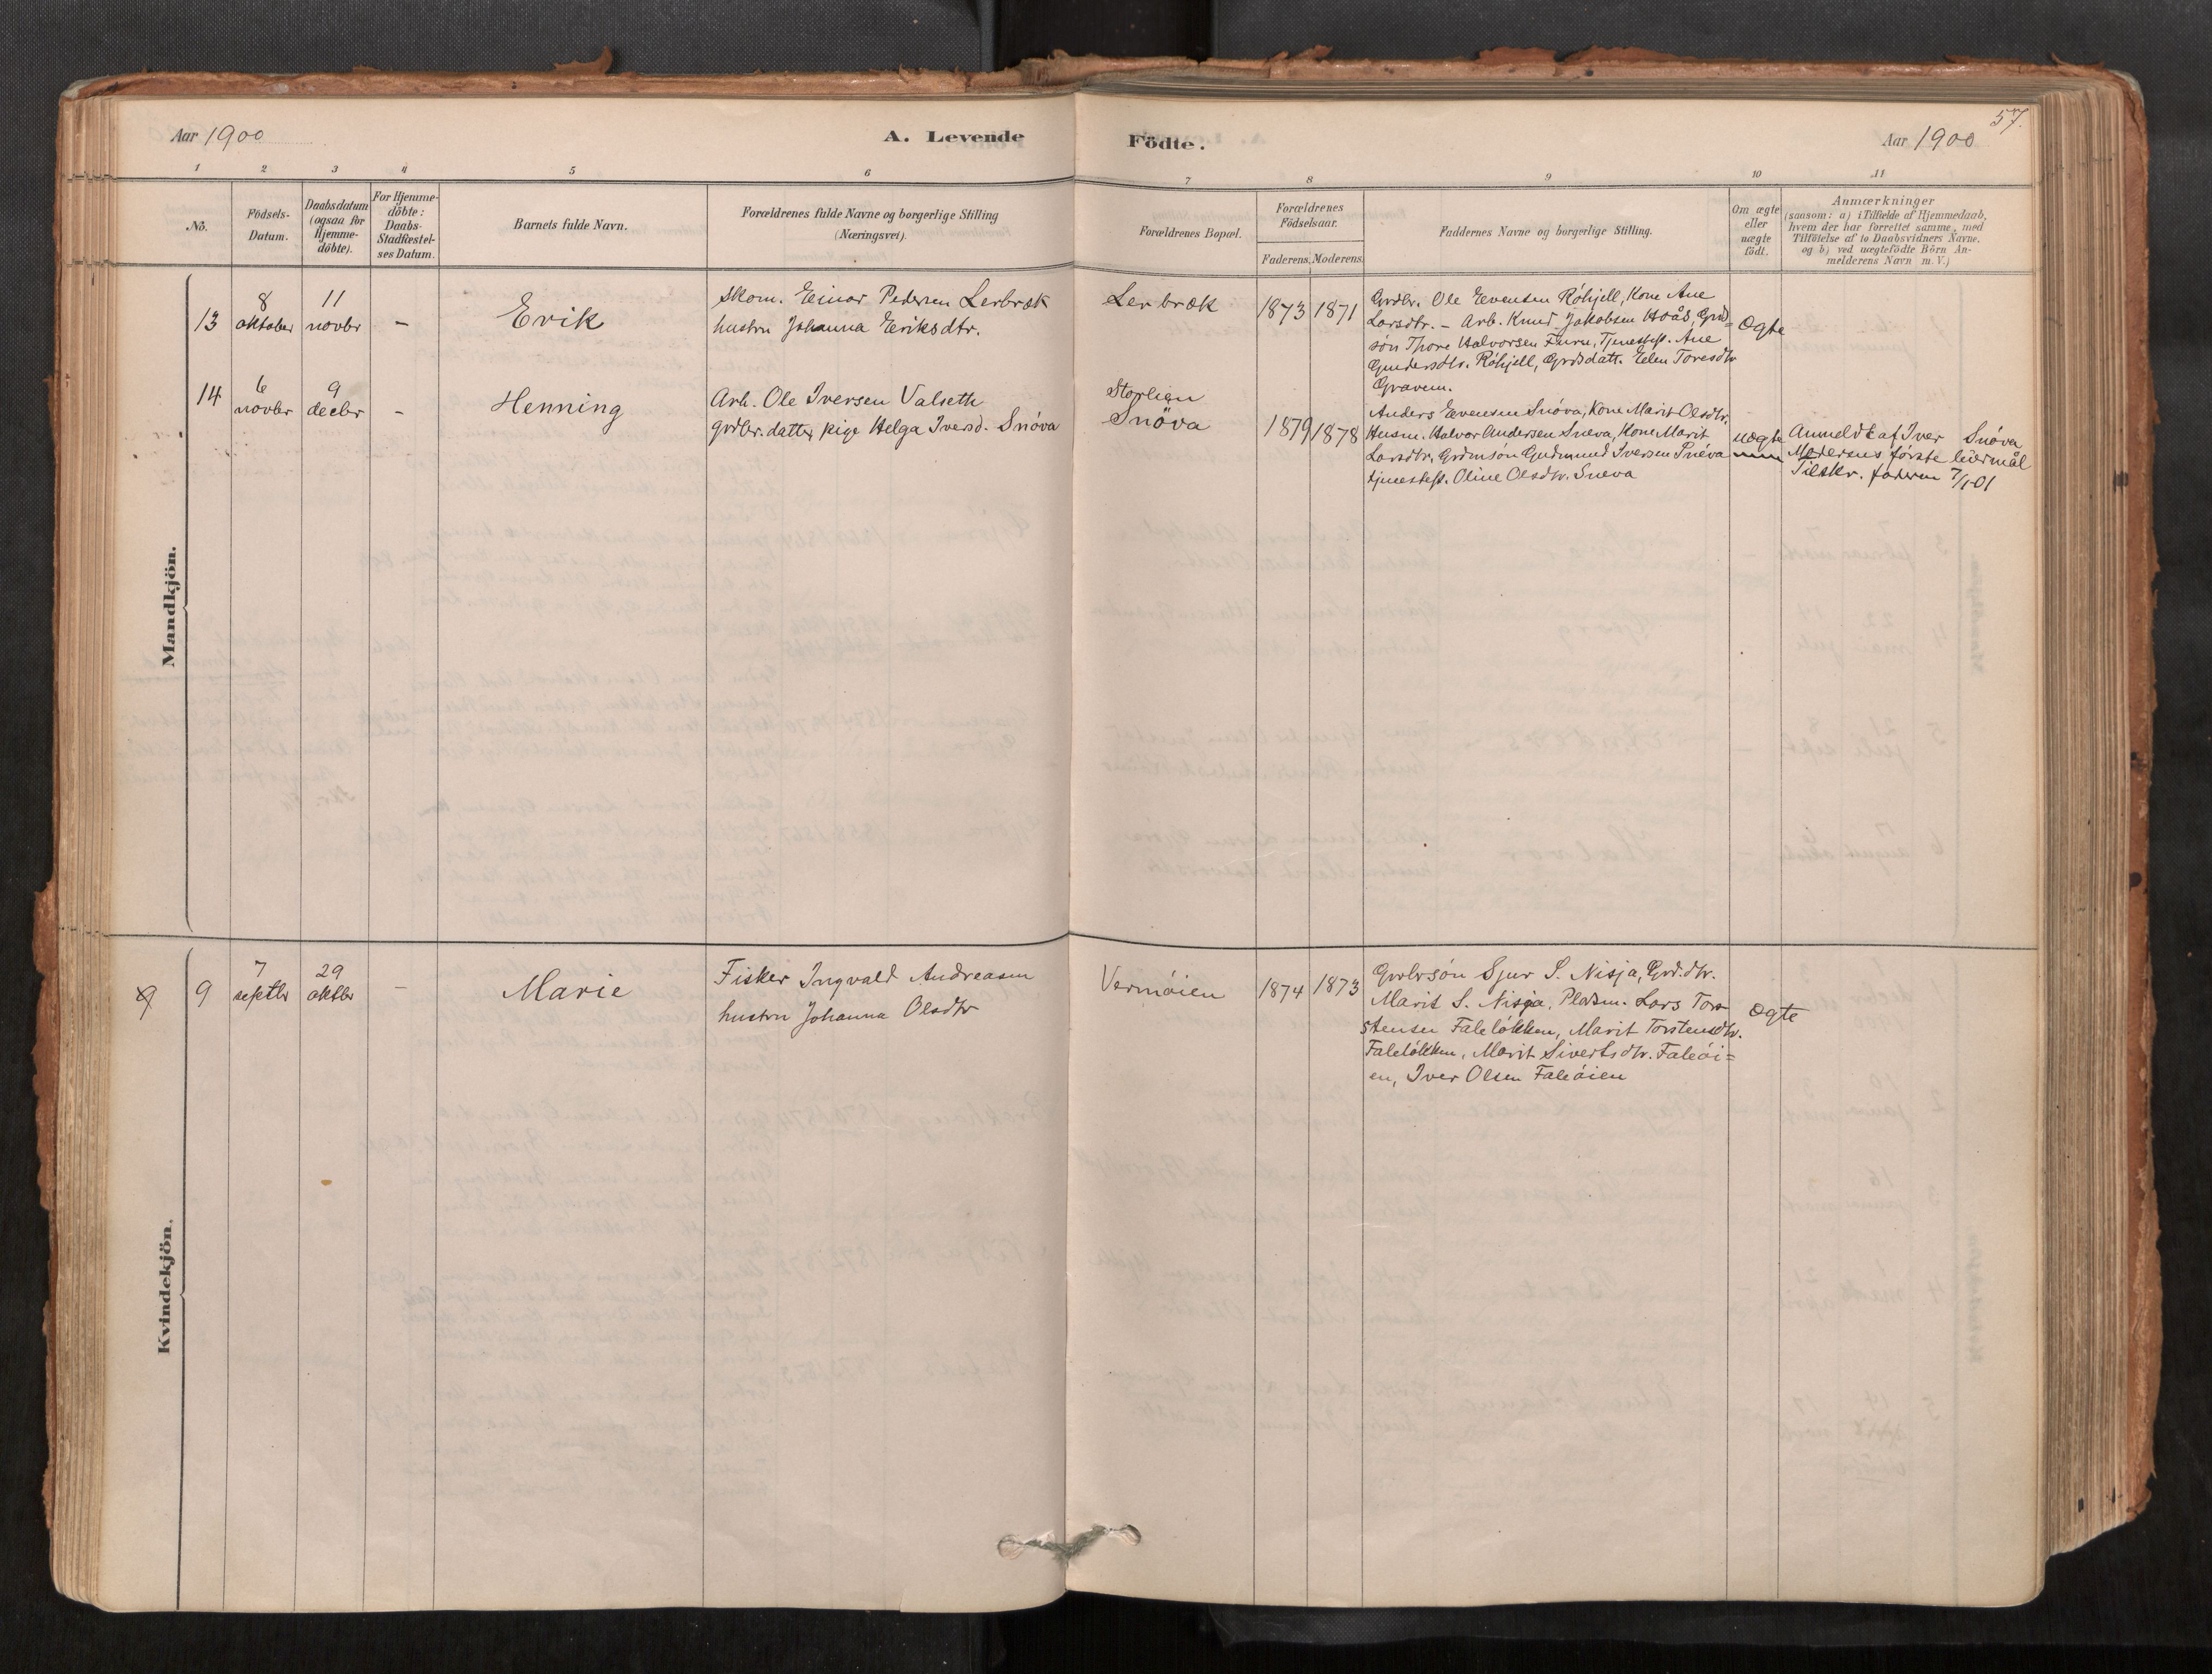 Aar 1900
A. Levende
Födte.
Aar 1900
57.
1 2 3 4 5 6 7 8 9 10 11
No.
Födsels-
Datum.
Daabsdatum
(ogsaa for
Hjemme-
döbte).
For Hjemme-
döbte:
Daabs-
Stadfæstel-
ses Datum.
Barnets fulde Navn.
Forældrenes fulde Navne og borgerlige Stilling
(Næringsvei).
Forældrenes Bopæl.
Forældrenes
Födselsaar.
Faderens. Moderens.
Faddernes Navne og borgerlige Stilling.
Om ægte
eller
uægte
födt.
Anmærkninger
(saasom: a) i Tilfælde af Hjemmedaab,
hvem der har forrettet samme, med
Tilföielse af to Daabsvidners Navne.
og b) ved uægtefödte Börn An-
melderens Navn m. V.)
Mandkjön.
13
8
oktober
11
novbr
–
Erik
Skom. Einar Pedersen Lerbræk
hustru Johanna Eriksdtr.
Lerbræk
1873 1871
Grdbr. Ole Evensen Röhjell, Kone Ane
Larsdtr. – Arb. Knud Jakobsen Hoås, Grd=
søn Thore Halvorsen Furu, Tjenestep. Ane
Gundersdtr. Röhjell, Grdsdatt. Eelen Toresdtr
Gravem.
Ogte
14
6
novbr
9
decbr
–
Henning
Arb. Ole Iversen Valseth
grdbr.datter, pige Helga Iversd. Snöva
Storlien
Snöva
1879 1878
Anders Evensen Snöva, Kone Marit Olsdtr,
Husm. Halvor Andersen Sneva, Kone Marit
Larsdtr, Grdmsön Gudmund Iversen Sneva
tjenestep. Oline Olsdtr. Sneva
uægte
Anmeldt af Iver Snöva
Moderens förste leiermål
Tilskr. faderen 7/1-01
Kvindekjön.
9
9
7
septbr
29
oktbr
–
Marie
Fisker Ingvald Andreasen
hustru Johanna Olsdtr
Vermöien
1874 1873
Grdbrsön Sjur S. Nisja, Grd.dtr.
Marit S. Nisja, Pladsm. Lars Tor-
stensen Faleløkken, Marit Torstensdtr.
Faleløkken, Marit Sivertsdtr. Faleöi=
en, Iver Olsen Faleöien
Ogte